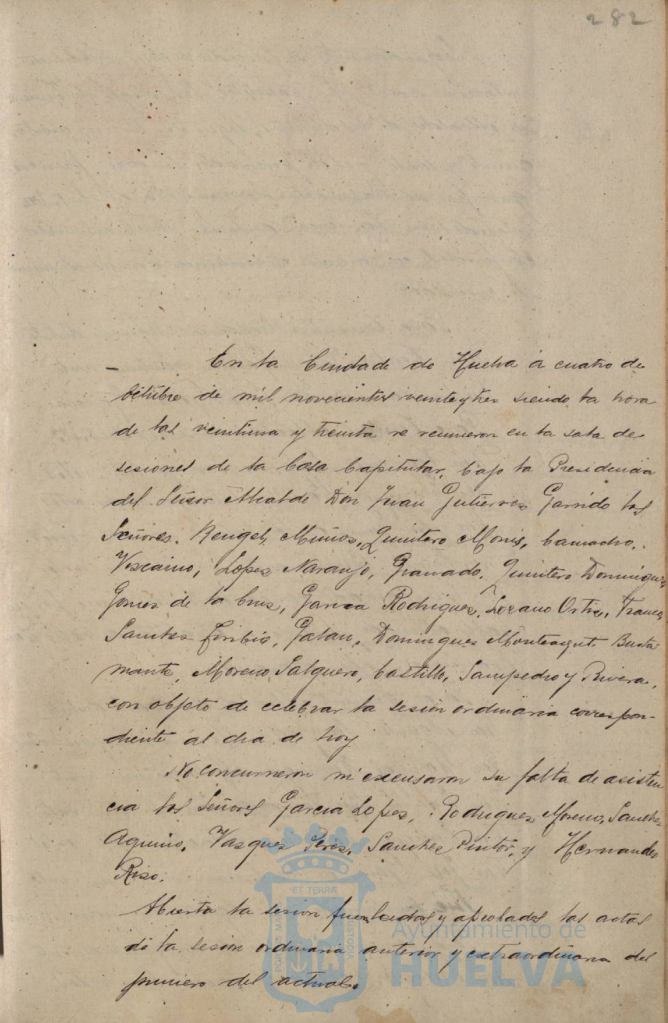 282
En la Ciudade de Huelva a cuatro de
Octubre de mil novecientos veinte y tres siendo la hora
de las veintiuna y treinta se reunieron en la sala de
sesiones de la Casa Capitular, bajo la Presidencia
del Señor Alcalde Don Juan Gutierres Garrido los
Señores. Rengel, Muños, Quintero Monis, Camacho,
Viscaino, Lopes Naranjo, Granado, Quintero Domingues
Gomes de la Crus, Garcia Rodrigues, Lozano Ortis, Franco,
Sanches Toribio, Galan, Domingues Monteagut, Busta
mante, Moreno Salguero, Castillo, Sampedro y Rivera,
con objeto de celebrar la sesión ordinaria correspon
diente al dia de hoy
No concurrieron ni excusaron su falta de asisten
cia los Señores Garcia Lopes, Rodrigues Moreno, Sanches
Aquino, Vasques Peres, Sanches Pintor, y Hernandes
Riso.
Abierta la sesion fueron leidas y aprobadas las actas
de la sesion ordinaria anterior y extraordinaria del
primero del actual.
Ayuntamiento de
HUELVA